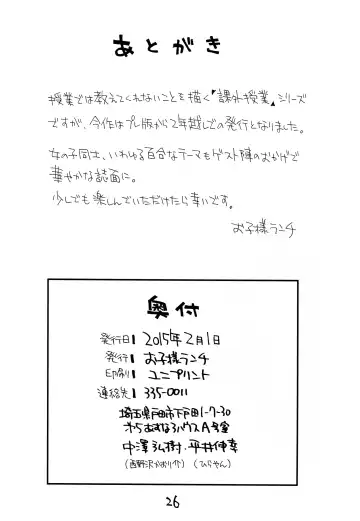 あとがき
授業では教えてくれないことを描く『課外授業』シリーズ
ですが、今作はプレ版から2年越しでの発行となりました。
女の子同士、いわゆる百合なテーマもゲスト陣のおかげで
華やかな誌面に。
少しでも楽しんでいただけたら幸いです。
お子様ランチ
奥付
発行日 2015年2月1日
発行 お子様ランチ
印刷 ユニプリント
連絡先 335-0011
埼玉県戸田市下戸田1-7-30
オ5あすなろハウスA号室
中澤弘樹・平井伸幸
(西野沢かおり介) (ひらやん)
26